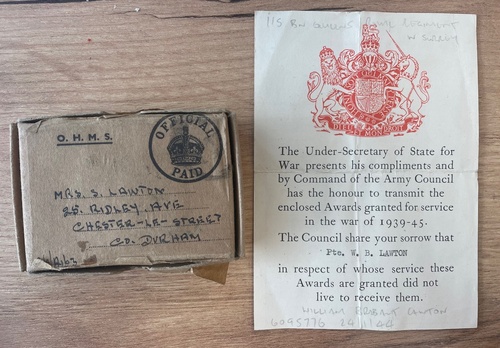 O. H. M. S.
OFFICIAL
PAID
MRS. S. LAWTON
25. RIDLEY AVE
CHESTER-LE-STREET
CO. DURHAM
1/5 BN QUEENS ROYAL REGIMENT
W SURREY
DIEU ET MON DROIT
The Under-Secretary of State for
War presents his compliments and
by Command of the Army Council
has the honour to transmit the
enclosed Awards granted for service
in the war of 1939-45.
The Council share your sorrow that
Pte. W. B. LAWTON
in respect of whose service these
Awards are granted did not
live to receive them.
WILLIAM LAWTON
6095776